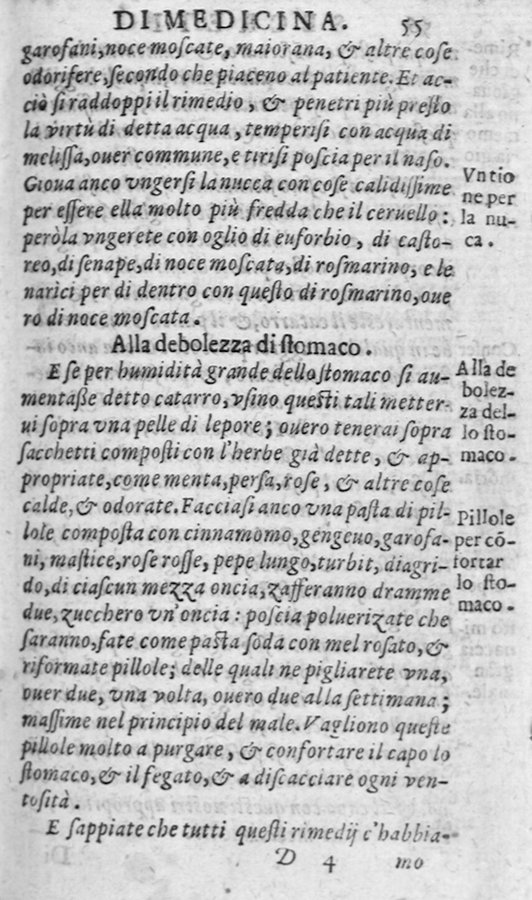 DI MEDICINA. 55
garofani, noce moſcate, maiorana, & altre coſe
odorifere, ſecondo che piaceno al patiente. Et ac-
ciò ſi raddoppi il rimedio, & penetri più preſto
la virtù di detta acqua, temperiſi con acqua di
meliſſa, ouer commune, e tiriſi poſcia per il naſo.
Gioua anco vngerſi la nucca con coſe calidiſſime
per eſſere ella molto più fredda che il ceruello:
però la vngerete con oglio di euforbio, di caſto-
reo, di ſenape, di noce moſcata, di roſmarino, e le
narici per di dentro con queſto di roſmarino, oue
ro di noce moſcata.
Vntio
ne per
la nu-
ca.
Alla debolezza di ſtomaco.
E ſe per humidità grande dello ſtomaco ſi au-
mentaße detto catarro, vſino queſti tali metter-
ui ſopra vna pelle di lepore; ouero tenerai ſopra
ſacchetti compoſti con l'herbe già dette, & ap-
propriate, come menta, perſa, roſe, & altre coſe
calde, & odorate. Facciaſi anco vna paſta di pil-
lole compoſta con cinnamomo, gengeuo, garofa-
ni, maſtice, roſe roſſe, pepe lungo, turbit, diagri-
do, di ciaſcun mezza oncia, zafferanno dramme
due, zucchero vn'oncia: poſcia poluerizate che
ſaranno, fate come paſta ſoda con mel roſato, &
riformate pillole; delle quali ne pigliarete vna,
ouer due, vna volta, ouero due alla ſettimana;
maſſime nel principio del male. Vagliono queſte
pillole molto a purgare, & confortare il capo lo
ſtomaco, & il fegato, & a diſcacciare ogni ven-
toſità.
Alla de
bolez-
za del-
lo ſto-
maco.
Pillole
per cō-
fortar
lo ſto-
maco.
E ſappiate che tutti queſti rimedij c'habbia-
D 4 mo